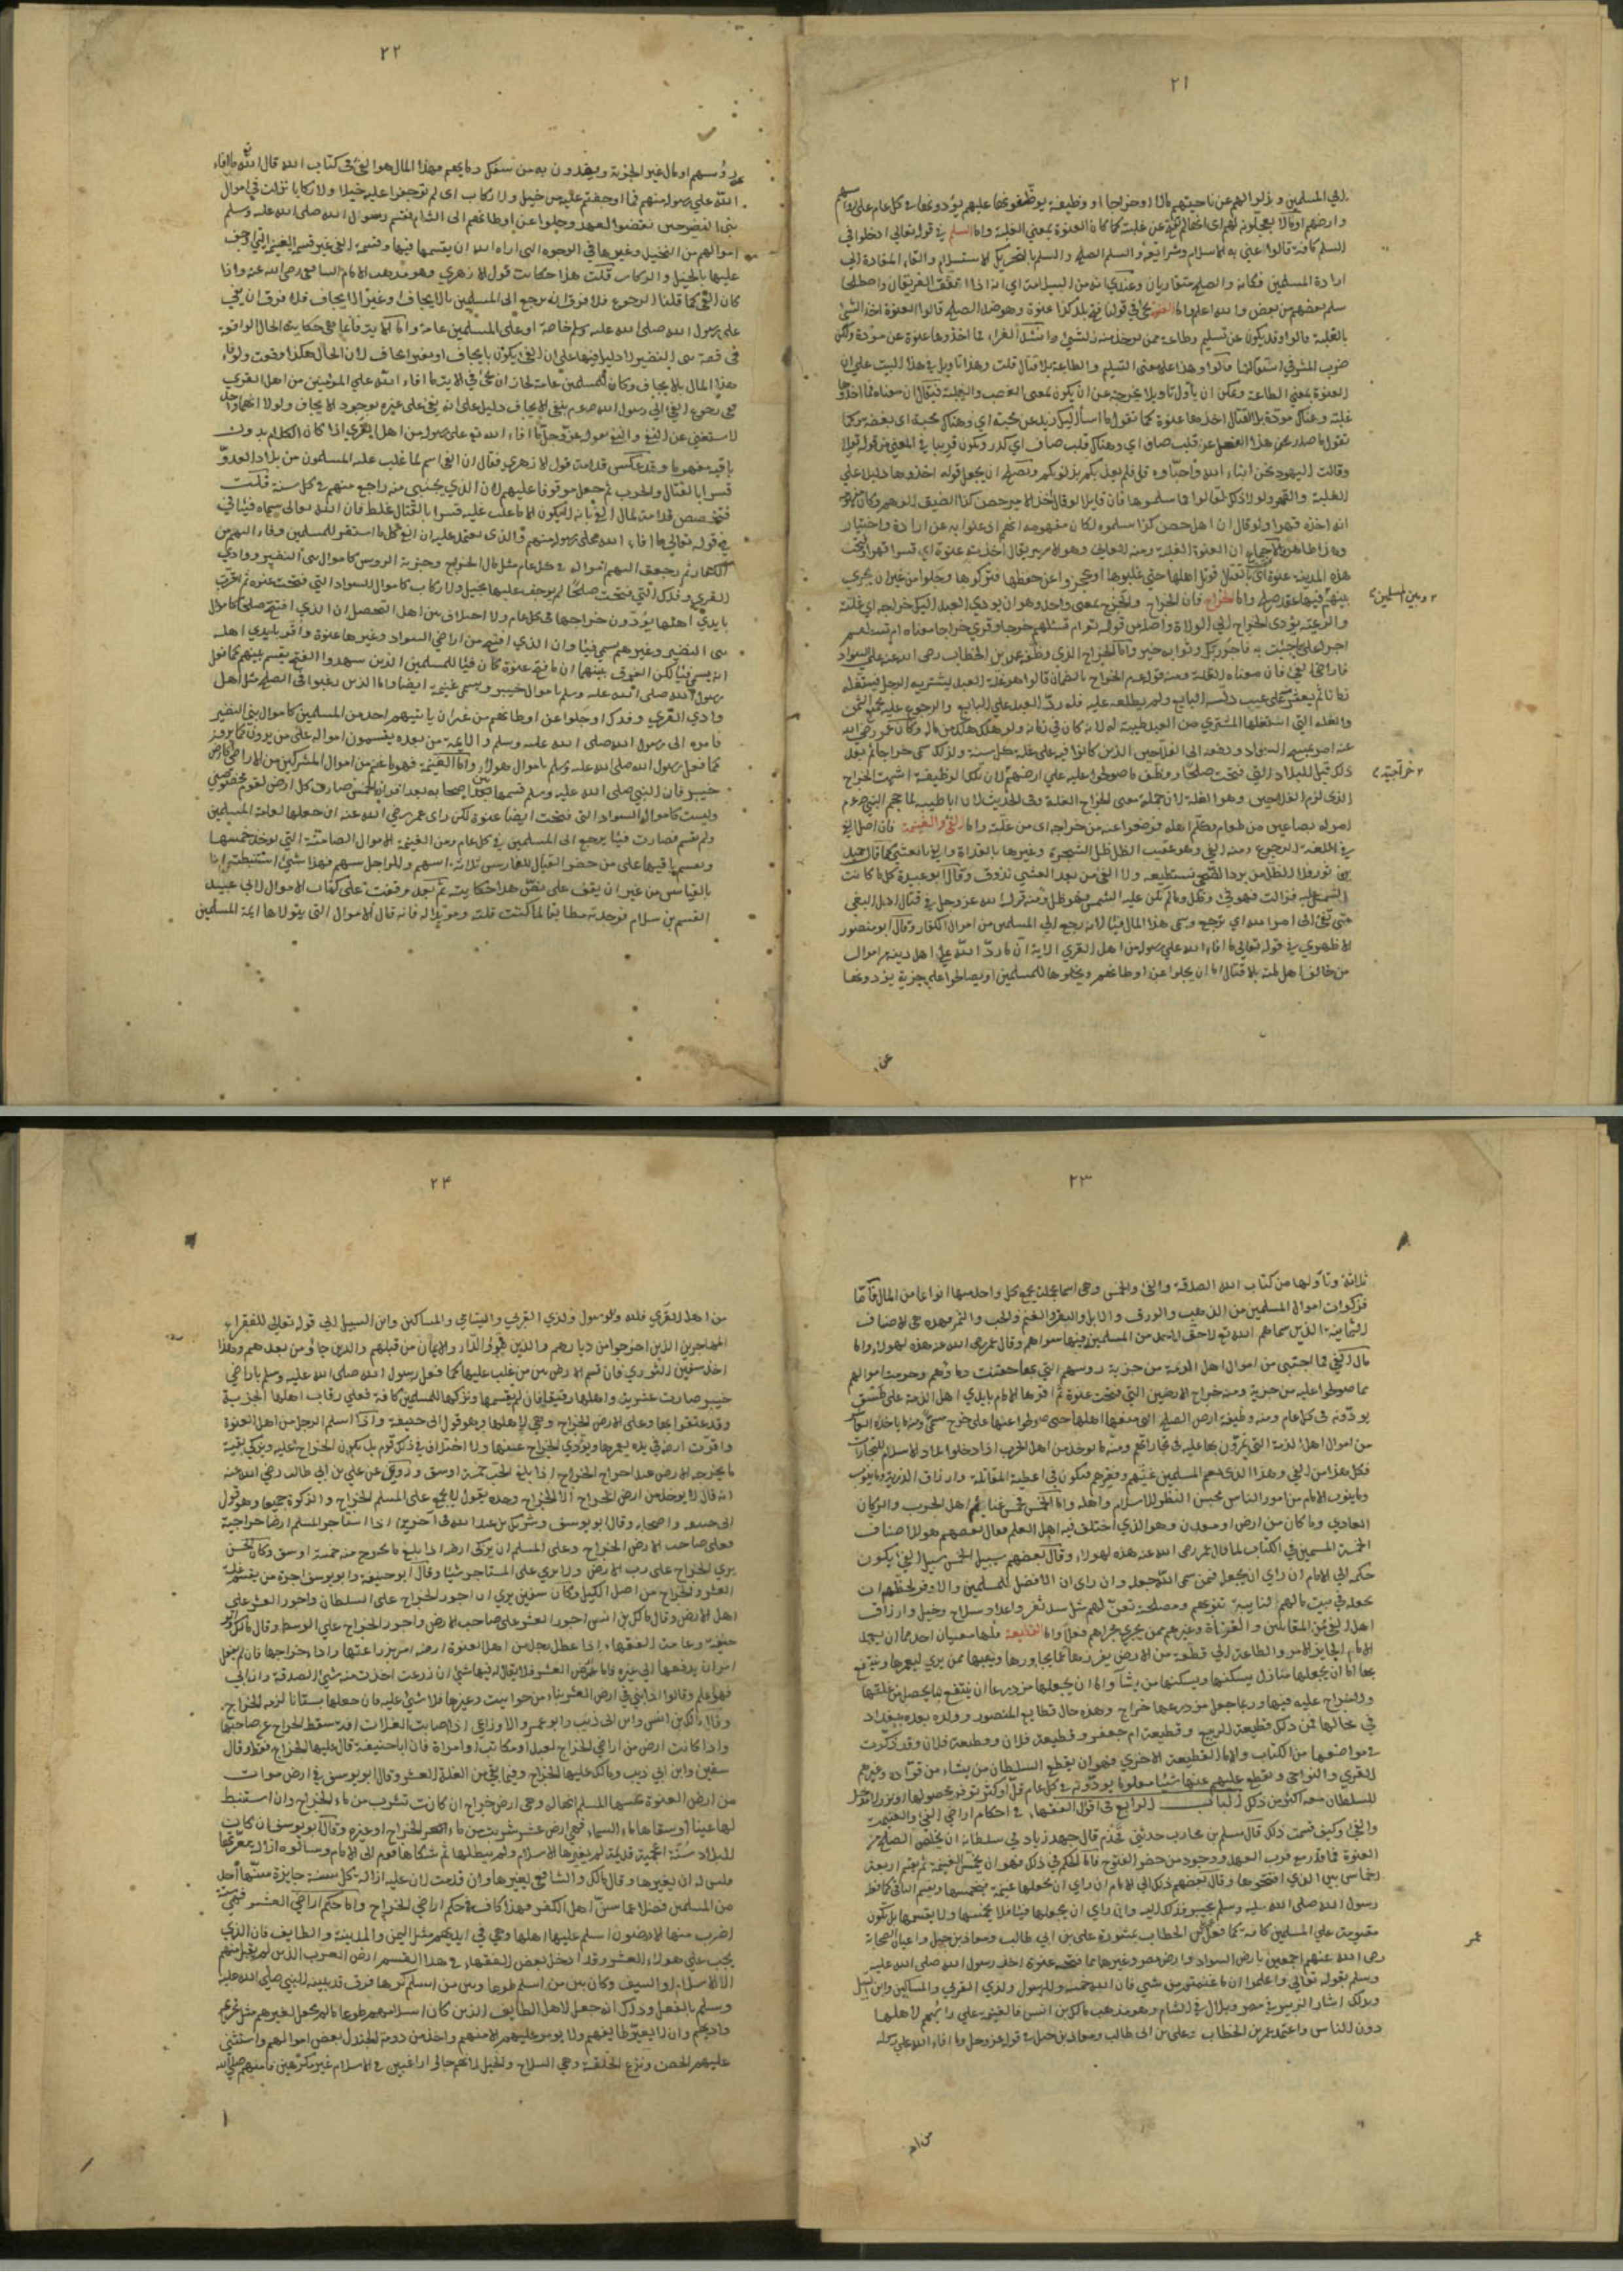 ٢١
الي المسلمين وبذلوا لهم عن ناحيتهم مالا او خراجا او وظيفة يوظفونها عليهم يؤدونها في كل عام على رؤسهم
السلم كافة قالوا عنى به الاسلام وشرائعه والسلم الصلح والسلم بالتحريك الاستسلام والقاء المقادة الي
ارادة المسلمين فكانه والصلح متقاربان وعندي انه من السلامة اي انه اذا اتفق الفريقان واصطلحا
سلم بعضهم من بعض والله اعلم واما العنوة
بالغلبة قالوا وقد يكون عن تسليم وطاعة ممن يوخذ منه الشئ وانشد الفراء فما اخذوها عنوة عن مودة ولكن
ضرب المشرفي استقالها قالوا وهذا على معنى التسليم والطاعة بلا قتال قلت وهذا تاويل في هذا البيت علي ان
العنوة بمعنى الطاعة ويمكن ان يأول تاويلا يخرجه عن ان يكون بمعنى الغصب والغلبة فيقال ان معناه فما اخذوها
وقالت اليهود نحن ابناء الله واحباؤه قل فلم يعذبكم بذنوبكم
انه اخذه قهرا ولو قال ان اهل حصن كذا سلموه لكان مفهومه انهم اذعنوا به عن ارادة واختيار
هذه المدينة عنوة
٢ وبين المسلمين
بينهم فيها عقد صلح واما الخراج فان الخراج والخرج بمعنى واحد وهو ان يودي العبد اليك خراجه اي غلته
والرعية يؤدى الخراج الي الولاة واصله من قوله تع ام تسئلهم خرجا وقري خراجا معناه ام تسئلهم
زمانا ثم يعثر على عيب دلسه البايع ولم يطلعه عليه فله رد العبد علي البايع والرجوع عليه بجميع الثمن
والغلة التي استغلها المشتري من العبد طيبة له لانه كان في ضمانه ولو هلك هلك من ماله وكان عمر رضي الله
عنه امر بمسح السواد ودفعه الى الفلاحين الذين كانوا فيه على غلة كل سنة ولذلك سمى خراجا ثم بعد
ذلك قيل للبلاد التي فتحت صلحا ووظف ما صولحوا عليه علي ارضهم لان تلك الوظيفة اشبهت الخراج
٢ خراجية
الذى لزم الفلاحين وهو الغلة لان جملة معنى الخراج الغلة وفى الحديث ان ابا طيبة لما حجم النبي صلعم
امر له بصاعين من طعام وكلم اهله فوضعوا عنه من خراجه اى من غلته واما الفئ والغنيمة فان اصل الفئ
في اللغة الرجوع ومنه الفئ وهو عقيب الظل الذي للشجرة وغيرها بالغداة والفئ بالعشي كما قال حميد
بن ثور فلا الظل من برد الضحى تستطيعه ولا الفئ من بعد العشي تذوق وقال ابو عبيدة كل ما كانت
الشمس عليه فزالت فهو فئ وظل وما لم تكن عليه الشمس فهو ظل ومنه قول الله عز وجل في قتال اهل البغي
حتى تفئ الى امر الله اي ترجع وسمى هذا المال فيئا لانه رجع الي المسلمين من اموال الكفار وقال ابو منصور
الازهري في قوله تعالى ما افاء الله علي رسوله من اهل القري الاية اي ما رد الله على اهل دينه من اموال
من خالف اهل ملته بلا قتال اما ان يجلوا عن اوطانهم ويخلوها للمسلمين او يصالحوا على جزية يؤدونها
عن
٢٢
رؤسهم او مال غير الجزية ويفتدون به من سفك دمايهم فهذا المال هو الفئ فى كتاب الله قال الله تع ما افاء
الله علي رسوله منهم فما اوجفتم عليه من خيل ولا ركاب اى لم توجفوا عليه خيلا ولا ركابا نزلت في اموال
بنى النضير حين نقضوا العهد وجلوا عن اوطانهم الى الشام فقسم رسول الله صلى الله عليه وسلم
اموالهم من النخيل وغيرها في الوجوه التى اراه الله ان يقسمها فيها وقسمة الفئ غير قسمة الغنيمة التي اوجف
عليها بالخيل والركاب قلت هذا حكاية قول الازهري وهو مذهب الامام الشافعي رضى الله عنه واذا
كان الفئ كما قلنا الرجوع فلا فرق ان يرجع الى المسلمين بالايجاف او غير الايجاف فلا فرق ان يفئ
على رسول الله صلى الله عليه وسلم خاصة او على المسلمين عامة
هذا المال بلا ايجاف وكان للمسلمين عامة
باقيه مفهوما وقد عكس قدامة قول الازهري فقال ان الفئ اسم لما غلب عليه المسلمون من بلاد العدو
قسرا بالقتال والحرب ثم جعل موقوفا عليهم لان الذي يجتبى منه راجع منهم في كل سنة قلت
فتخصيص قدامة لمال الفئ بانه لا يكون الا ما غلب عليه قسرا بالقتال غلط فان الله تعالى سماه فيئا في
في قوله تعالى ما افاء الله على رسوله منهم والذى يعتمد عليه ان الفئ كل ما استقر للمسلمين وفاء اليهم من
الكفار ثم رجعت اليهم امواله في كل عام مثل مال الخراج وجزية الروس كاموال بنى النضير ووادي
القري وفدك التي فتحت صلحا لم يوجف عليها بخيل ولا ركاب كاموال السواد التي فتحت عنوة ثم اقرت
بايدي اهلها يؤدون خراجها فى كل عام ولا اختلاف بين اهل التحصيل ان الذي افتتح صلحا كاموال
بنى النضير وغيرهم يسمى فيئا وان الذي افتتح من اراضي السواد وغيرها عنوة واقر بايدي اهله
انه يسمى فيئا لكن الفرق بينهما ان ما فتح عنوة كان فيئا للمسلمين الذين شهدوا الفتح يقسم بينهم كما فعل
رسول الله صلى الله عليه وسلم باموال خيبر ويسمى غنيمة ايضا واما الذين رغبوا فى الصلح مثل اهل
وادي القري وفدك او جلوا عن اوطانهم من غير ان ياتيهم احد من المسلمين كاموال بنى النضير
فامره الى رسول الله صلى الله عليه وسلم والائمة من بعده يقسمون امواله على من يرون
كما فعل رسول الله صلى الله عليه وسلم باموال هولاء واما الغنيمة فهو ما غنم من اموال المشركين من الاراضي كارض
خيبر فان النبي صلى الله عليه وسلم قسمها بين اصحابه بعد افراز الخمس وصارت كل ارض لقوم مخصوصين
وليست كاموال السواد التى فتحت ايضا عنوة لكن راى عمر رضي الله عنه ان جعلها لعامة المسلمين
ولم تقسم فصارت فيئا يرجع الى المسلمين في كل عام ومن الغنيمة الاموال الصامتة التي يوخذ خمسها
ويقسم باقيها على من حضر القتال للفارس ثلاثة اسهم وللراجل سهم فهذا شئ استنبطته انا
بالقياس من غير ان اقف على نص هذا حكايته ثم بعد وقفت على كتاب الاموال لابي عبيد
القسم بن سلام فوجدته مطابقا لما كنت قلته ومؤيدا له فانه قال الاموال التى يتولاها ايمة المسلمين
٢٣
ثلاثة وتأولها من كتاب الله الصدقة والفئ والخمس وهى اسماء مجملة يجمع كل واحد منها انواعا من المال فاما
فزكوات اموال المسلمين من الذهب والورق والابل والبقر والغنم والحب والثمر فهذه هى الاصناف
الثمانية الذين سماهم الله تع لا حق لاحد من المسلمين فيها سواهم وقال عمر رضى الله عنه هذه لهولاء واما
مال الفئ فما اجتبى من اموال اهل الذمة من جزية روسهم التي بها حقنت دماؤهم وحرمت اموالهم
بما صولحوا عليه من جزية ومنه خراج الارضين التي فتحت عنوة ثم اقرها الامام بايدي اهل الذمة على طسق
يودونه فى كل عام ومنه وظيفة ارض الصلح التى منعها اهلها حتى صولحوا عنها على خرج مسمى ومنه ما ياخذه العاشر
من اموال اهل الذمة التي يمرون بها عليه فى تجاراتهم ومنه ما يوخذ من اهل الحرب اذا دخلوا بلاد الاسلام للتجارات
فكل هذا من الفئ وهذا الذى يعم المسلمين غنيهم وفقيرهم فيكون في اعطية المقاتلة وارزاق الذرية وما ينوب
وما ينوب الامام من امور الناس بحسن النظر للاسلام واهله واما الخمس فخمس غنايم اهل الحرب والركاز
العادي وما كان من ارض او معدن وهو الذي اختلف فيه اهل العلم فقال بعضهم هو للاصناف
الخمسة المسمين في الكتاب لما قال عمر رضى الله عنه هذه لهولاء وقال بعضهم سبيل الخمس سبيل الفئ يكون
حكمه الي الامام ان راي ان يجعله فيمن سمى الله جعله وان راى ان الافضل للمسلمين والاوفر لحظهم ان
يجعله في بيت مالهم لنايبة تنوبهم ومصلحة تعن لهم مثل سد ثغر واعداد سلاح وخيل وارزاق
اهل الفئ من المقاتلين والقضاة وغيرهم ممن يجري مجراهم فعل واما القطيعة فلها معنيان احدهما ان يعمد
الامام الجايز الامر والطاعة الي قطعة من الارض يفرزها عما يجاورها ويهبها ممن يري ليعمرها وينتفع
بها اما ان يجعلها منازل يسكنها ويسكنها من يشاء واما ان يجعلها مزدرعا ينتفع بما يحصل من غلتها
ولا خراج عليه فيها وربما جعل على مزدرعها خراج وهذه حال قطايع المنصور وولده بعده ببغداد
في محالها فمن ذلك قطيعة الربيع وقطيعة ام جعفر وقطيعة فلان وقطيعة فلان وقد ذكرت
في مواضعها من الكتاب واما القطيعة الاخرى فهو ان يقطع السلطان من يشاء من قواده وغيرهم
القري والنواحى ويقطع عليهم عنها شيئا معلوما يودونه في كل عام قل او كثر توفر محصولها او نزر لا مدخل
للسلطان معه اكثر من ذلك الباب الرابع في اقوال الفقهاء في احكام اراضى الفئ والغنيمة
والفئ وكيف قسمت ذلك قال مسلم بن محارب حدثني قحذم قال جهد زياد في سلطانه ان يخلص الصلح من
العنوة فما قدر مع قرب العهد ووجود من حضر الفتوح فاما الحكم في ذلك فهو ان يخمس الغنيمة ثم يقسم اربعة
اخماس بين الذي افتتحوها وقال بعضهم ذلك الى الامام ان راي ان يجعلها غنيمة فيخمسها ويقسم الباقى كما فعل
رسول الله صلى الله عليه وسلم بخيبر فذلك اليه وان راي ان يجعلها فيئا فلا يخمسها ولا يقسمها بل تكون
مقسومة علي المسلمين كافة كما فعل عمر بن الخطاب بمشورة على بن ابي طالب ومعاذ بن جبل واعيان الصحابة
عمر
رضى الله عنهم اجمعين بارض السواد وارض مصر وغيرهما مما فتحه عنوة اخذ رسول الله صلى الله عليه
وسلم بقوله تعالى واعلموا ان ما غنمتم من شئ فان لله خمسه وللرسول ولذي القربي والمساكين وابن السبيل
وبذلك اشار الزبير في مصر وبلال في الشام وهو مذهب مالك بن انس فالغنيمة علي رأيهم لاهلها
دون الناس واعتمد عمر بن الخطاب وعلى بن ابى طالب ومعاذ بن جبل في قوله عز وجل وما افاء الله علي رسوله
من اهل
٢٤
من اهل القري فلله وللرسول ولذي القربي واليتامي والمساكين وابن السبيل الي قوله تعالى للفقراء
المهاجرين الذين اخرجوا من ديارهم والذين تبوؤا الدار والايمان من قبلهم والذين جاؤ من بعدهم وبهذا
اخذ سفين الثوري فان قسم الارض بين من غلب عليها كما فعل رسول الله صلى الله عليه وسلم باراضي
خيبر صارت عشرية واهلها رقيقا فان لم يقسمها وتركها للمسلمين كافة فعلي رقاب اهلها الجزية
وقد عتقوا بها وعلى الارض الخراج وهى لاهلها وهو قول ابى حنيفة واذا اسلم الرجل من اهل العنوة
واقرت ارضه في يده ليعمرها ويؤدي الخراج عنها ولا اختلاف في ذلك قوم بل يكون الخراج عليه ويزكى بقية
ما يخرجه الارض بعد اخراج الخراج اذا بلغ الحب خمسة اوسق وروى عن على بن ابي طالب رضي الله عنه
انه قال لا يوخذ من ارض الخراج الا الخراج وحده يقول لا يجمع على المسلم الخراج والزكوة جميعا وهو قول
ابى حنيفة واصحابه وقال ابو يوسف وشريك بن عبد الله فى اخرين اذا استاجر المسلم ارضا خراجية
فعلى صاحب الارض الخراج وعلى المسلم ان يزكى ارضه اذا بلغ ما يخرج منه خمسة اوسق وكان الحسن
يري الخراج على رب الارض ولا يري على المستاجر شيئا وقال ابو حنيفة وابو يوسف اجرة من يقسم غلة
العشر والخراج من اصل الكيل وكان سفين يري ان اجور الخراج على السلطان واجور العشر على
اهل الارض وقال مالك بن انس اجور العشر على صاحب الارض واجور الخراج علي الوسط وقال مالك وابو
حنيفة وعامة الفقهاء اذا عطل رجل من اهل العنوة ارضه امر بزراعتها واداء خراجها فان لم يفعل
امر ان يدفعها الي غيره فاما ارض العشر فلا يقال له فيها شئ ان زرعت اخذت منه شئ الصدقة وان ابى
فهو اعلم وقالوا اذا بنى في ارض العشر بناء من حوانيت وغيرها فلا شئ عليه فان جعلها بستانا لزمه الخراج
وقال مالك بن انس وابن ابى ذئب وابو عمرو الاوزاعى اذا اصابت الغلات افة سقط الخراج عن صاحبها
واذا كانت ارض من اراضي الخراج لعبد او مكاتب او امراة فان ابا حنيفة قال عليها الخراج فقط وقال
سفين وابن ابي ذيب ومالك عليها الخراج وفيما بقي من الغلة العشر وقال ابو يوسف في ارض موات
من ارض العنوة يحييها المسلم انها له وهى ارض خراج ان كانت تشرب من ماء الخراج وان استنبط
لها عينا او سقاها ماء السماء فهى ارض عشر
للبلاد سنة اعجمية قديمة لم يغيرها الاسلام ولم يبطلها ثم شكاها قوم الى الامام وسالوه ازالة معرتها
فليس له ان يغيرها وقال مالك والشافعي يغيرها وان قدمت لان عليه ازالة كل سنة جايرة سنها احد
من المسلمين فضلا عما سن اهل الكفر فهذا كاف في حكم اراضي الخراج واما حكم اراضى العشر فهى ستة
اضرب منها الارضون اسلم عليها اهلها وهى في ايديهم مثل اليمن والمدينة والطايف فان الذي
يجب على هولاء العشر وقد ادخل بعض الفقهاء في هذا القسم ارض العرب الذين لم يقبل منهم
الا الاسلام او السيف وكان بين من اسلم طوعا وبين من اسلم كرها فرق قد بينه النبي صلى الله عليه
وسلم بالفعل وذلك انه جعل لاهل الطايف الذين كان اسلامهم طوعا ما لم يجعل لغيرهم مثل تحريم
واديهم وان لا يغير طايفهم ولا يومر عليهم الا منهم واخذ من دومة الجندل بعض اموالهم واستثنى
عليهم الحصن ونزع الحلقة وهى السلاح والخيل لانهم جاؤا راغبين في الاسلام غير مكرهين